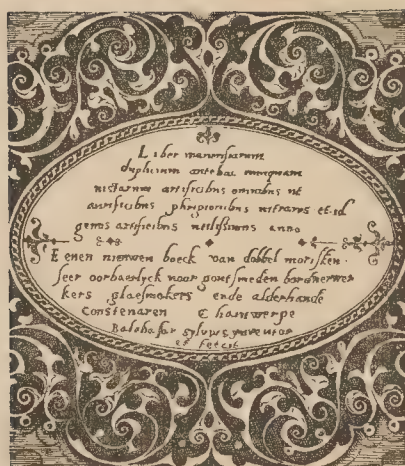 Liber maurusiarum
duplicium antehac nunquam
nistarum artificibus omnibus ut
aurificibus phrigionibus nitrarys et id
genus artificibus utilissimus anno
Eenen nieuwen boeck van dobbel morisken
seer oorbaerlyck voor goutsmeden bordnerwer
kers glaesmokers ende alderhande
Constenaren Thantwerpe
Balthasar sylvius inventor
et fecit